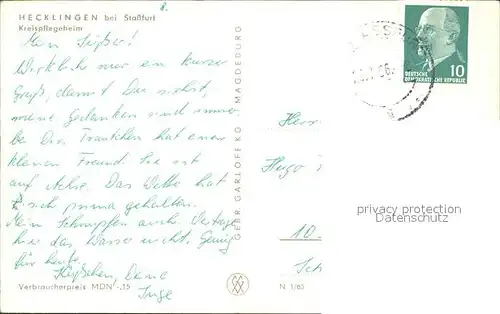 HECKLINGEN bei Staßfurt
Kreispflegeheim
Mein Süßer!
Wirklich nur ein kurzer
Gruß, damit Du siehst,
meine Gedanken sind immer
bei Dir. Frauchen hat einen
kleinen Freund. Sie ist
auf Achse. Das Wetter hat
sich prima gehalten.
Mein Schnupfen auch. Vertrage
hier das Wasser nicht. Genug
für heute.
Deine
Inge
Verbraucherpreis MDN -,15
GEBR. GARLOFF KG MAGDEBURG
N 1/65
DEUTSCHE
DEMOKRATISCHE REPUBLIK
10
Herrn
Hugo
10.
privacy protection
Datenschutz